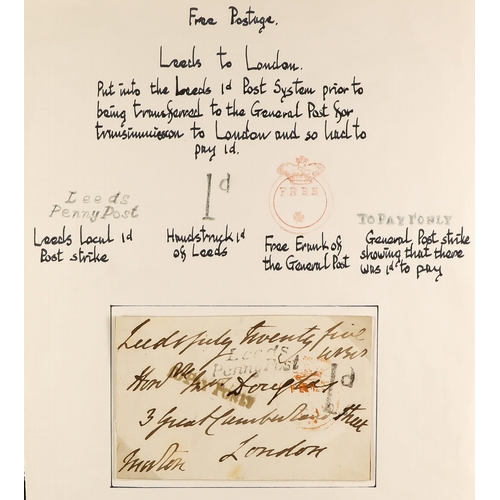 Free Postage.
Leeds to London.
Put into the Leeds 1d Post System prior to
being transferred to the General Post for
transimmission to London and so had to
pay 1d.
Leeds
Penny Post
1d
FREE
TO PAY 1d ONLY
Leeds Local 1d
Post strike
Handstruck 1d
of Leeds
Free Frank of
the General Post
General Post strike
showing that there
was 1d to pay
Leeds July twenty five
Leeds
Penny Post
1d
Honble Mrs Douglas
3 Great Cumberland Street
London